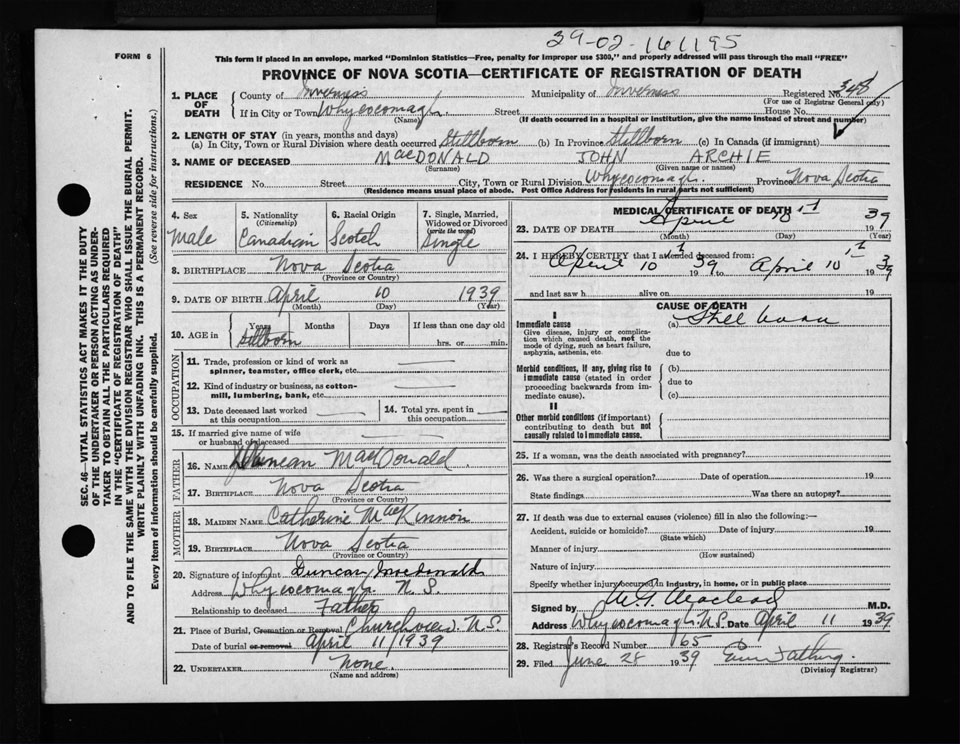 39-02-161195
FORM 6
This form if placed in an envelope, marked "Dominion Statistics—Free, penalty for improper use $300," and properly addressed will pass through the mail "FREE"
PROVINCE OF NOVA SCOTIA—CERTIFICATE OF REGISTRATION OF DEATH
SEC. 46—VITAL STATISTICS ACT MAKES IT THE DUTY
OF THE UNDERTAKER OR PERSON ACTING AS UNDER-
TAKER TO OBTAIN ALL THE PARTICULARS REQUIRED
IN THE "CERTIFICATE OF REGISTRATION OF DEATH"
AND TO FILE THE SAME WITH THE DIVISION REGISTRAR WHO SHALL ISSUE THE BURIAL PERMIT.
WRITE PLAINLY WITH UNFADING INK. THIS IS A PERMANENT RECORD.
Every item of information should be carefully supplied. (See reverse side for instructions.)
1. PLACE OF DEATH
County of Inverness Municipality of Inverness Registered No. 348
(For use of Registrar General only)
If in City or Town Whycocomagh Street House No.
(Name) (If death occurred in a hospital or institution, give the name instead of street and number)
2. LENGTH OF STAY (in years, months and days)
(a) In City, Town or Rural Division where death occurred Stillborn (b) In Province Stillborn (c) In Canada (if immigrant)
3. NAME OF DECEASED MACDONALD JOHN ARCHIE
(Surname) (Given name or names)
RESIDENCE No. Street City, Town or Rural Division Whycocomagh Province Nova Scotia
(Residence means usual place of abode. Post Office Address for residents in rural parts not sufficient)
4. Sex Male
5. Nationality (Citizenship) Canadian
6. Racial Origin Scotch
7. Single, Married, Widowed or Divorced (write the word) Single
8. BIRTHPLACE Nova Scotia
(Province or Country)
9. DATE OF BIRTH April 10 1939
(Month) (Day) (Year)
10. AGE in Years Months Days If less than one day old
Stillborn hrs. or min.
OCCUPATION
11. Trade, profession or kind of work as
spinner, teamster, office clerk, etc.
12. Kind of industry or business, as cotton-
mill, lumbering, bank, etc.
13. Date deceased last worked
at this occupation
14. Total yrs. spent in
this occupation
15. If married give name of wife
or husband of deceased
FATHER
16. NAME Duncan MacDonald
17. BIRTHPLACE Nova Scotia
(Province or Country)
MOTHER
18. MAIDEN NAME Catherine MacKinnon
19. BIRTHPLACE Nova Scotia
(Province or Country)
20. Signature of informant Duncan Macdonald
Address Whycocomagh N.S.
Relationship to deceased Father
21. Place of Burial, Cremation or Removal Churchview N.S.
Date of burial or removal April 11/1939
22. UNDERTAKER None
(Name and address)
MEDICAL CERTIFICATE OF DEATH
23. DATE OF DEATH April 10 1939
(Month) (Day) (Year)
24. I HEREBY CERTIFY that I attended deceased from:
April 10 1939 to April 10 1939
and last saw h alive on 19
CAUSE OF DEATH
I
Immediate cause (a) Still born
Give disease, injury or complica-
tion which caused death, not the
mode of dying, such as heart failure,
asphyxia, asthenia, etc.
due to
Morbid conditions, if any, giving rise to (b)
immediate cause (stated in order due to
proceeding backwards from im-
mediate cause). (c)
II
Other morbid conditions (if important)
contributing to death but not
causally related to immediate cause.
25. If a woman, was the death associated with pregnancy?
26. Was there a surgical operation? Date of operation 19
State findings Was there an autopsy?
27. If death was due to external causes (violence) fill in also the following:—
Accident, suicide or homicide? Date of injury 19
(State which)
Manner of injury
(How sustained)
Nature of injury
Specify whether injury occurred in industry, in home, or in public place
Signed by Macleod M.D.
Address Whycocomagh N.S. Date April 11 1939
28. Registrar's Record Number 165
29. Filed June 28 1939
(Division Registrar)